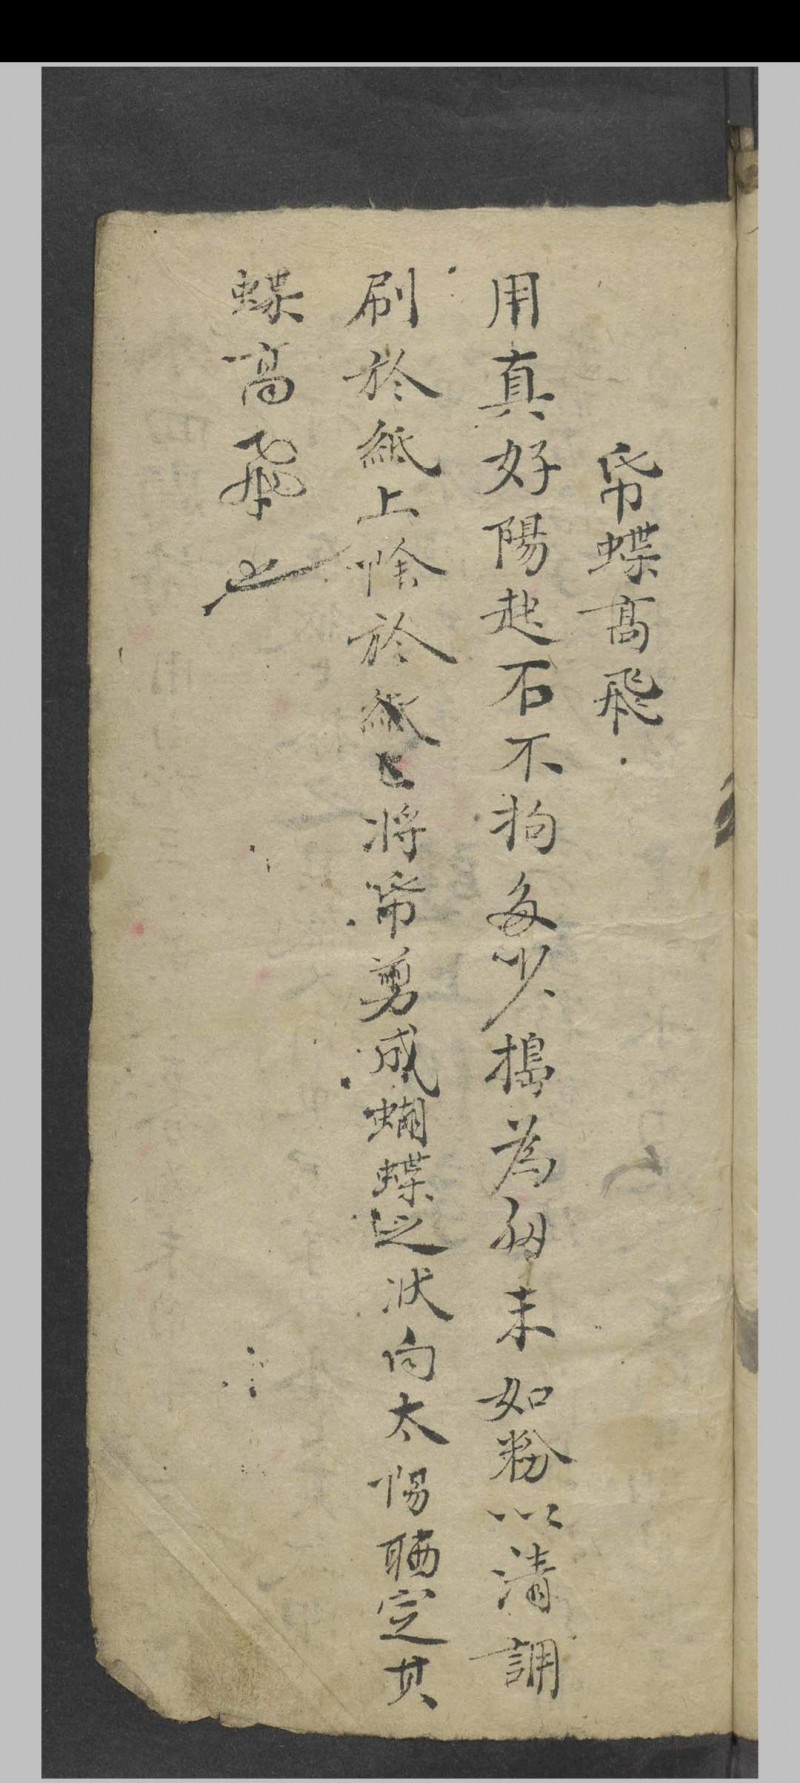 帋蝶高飛
用真好陽起石不拘多少搗為細末如粉以清調
刷於紙上陰於紙上將帋剪成蝴蝶之状向太陽晒定其
蝶高飛之